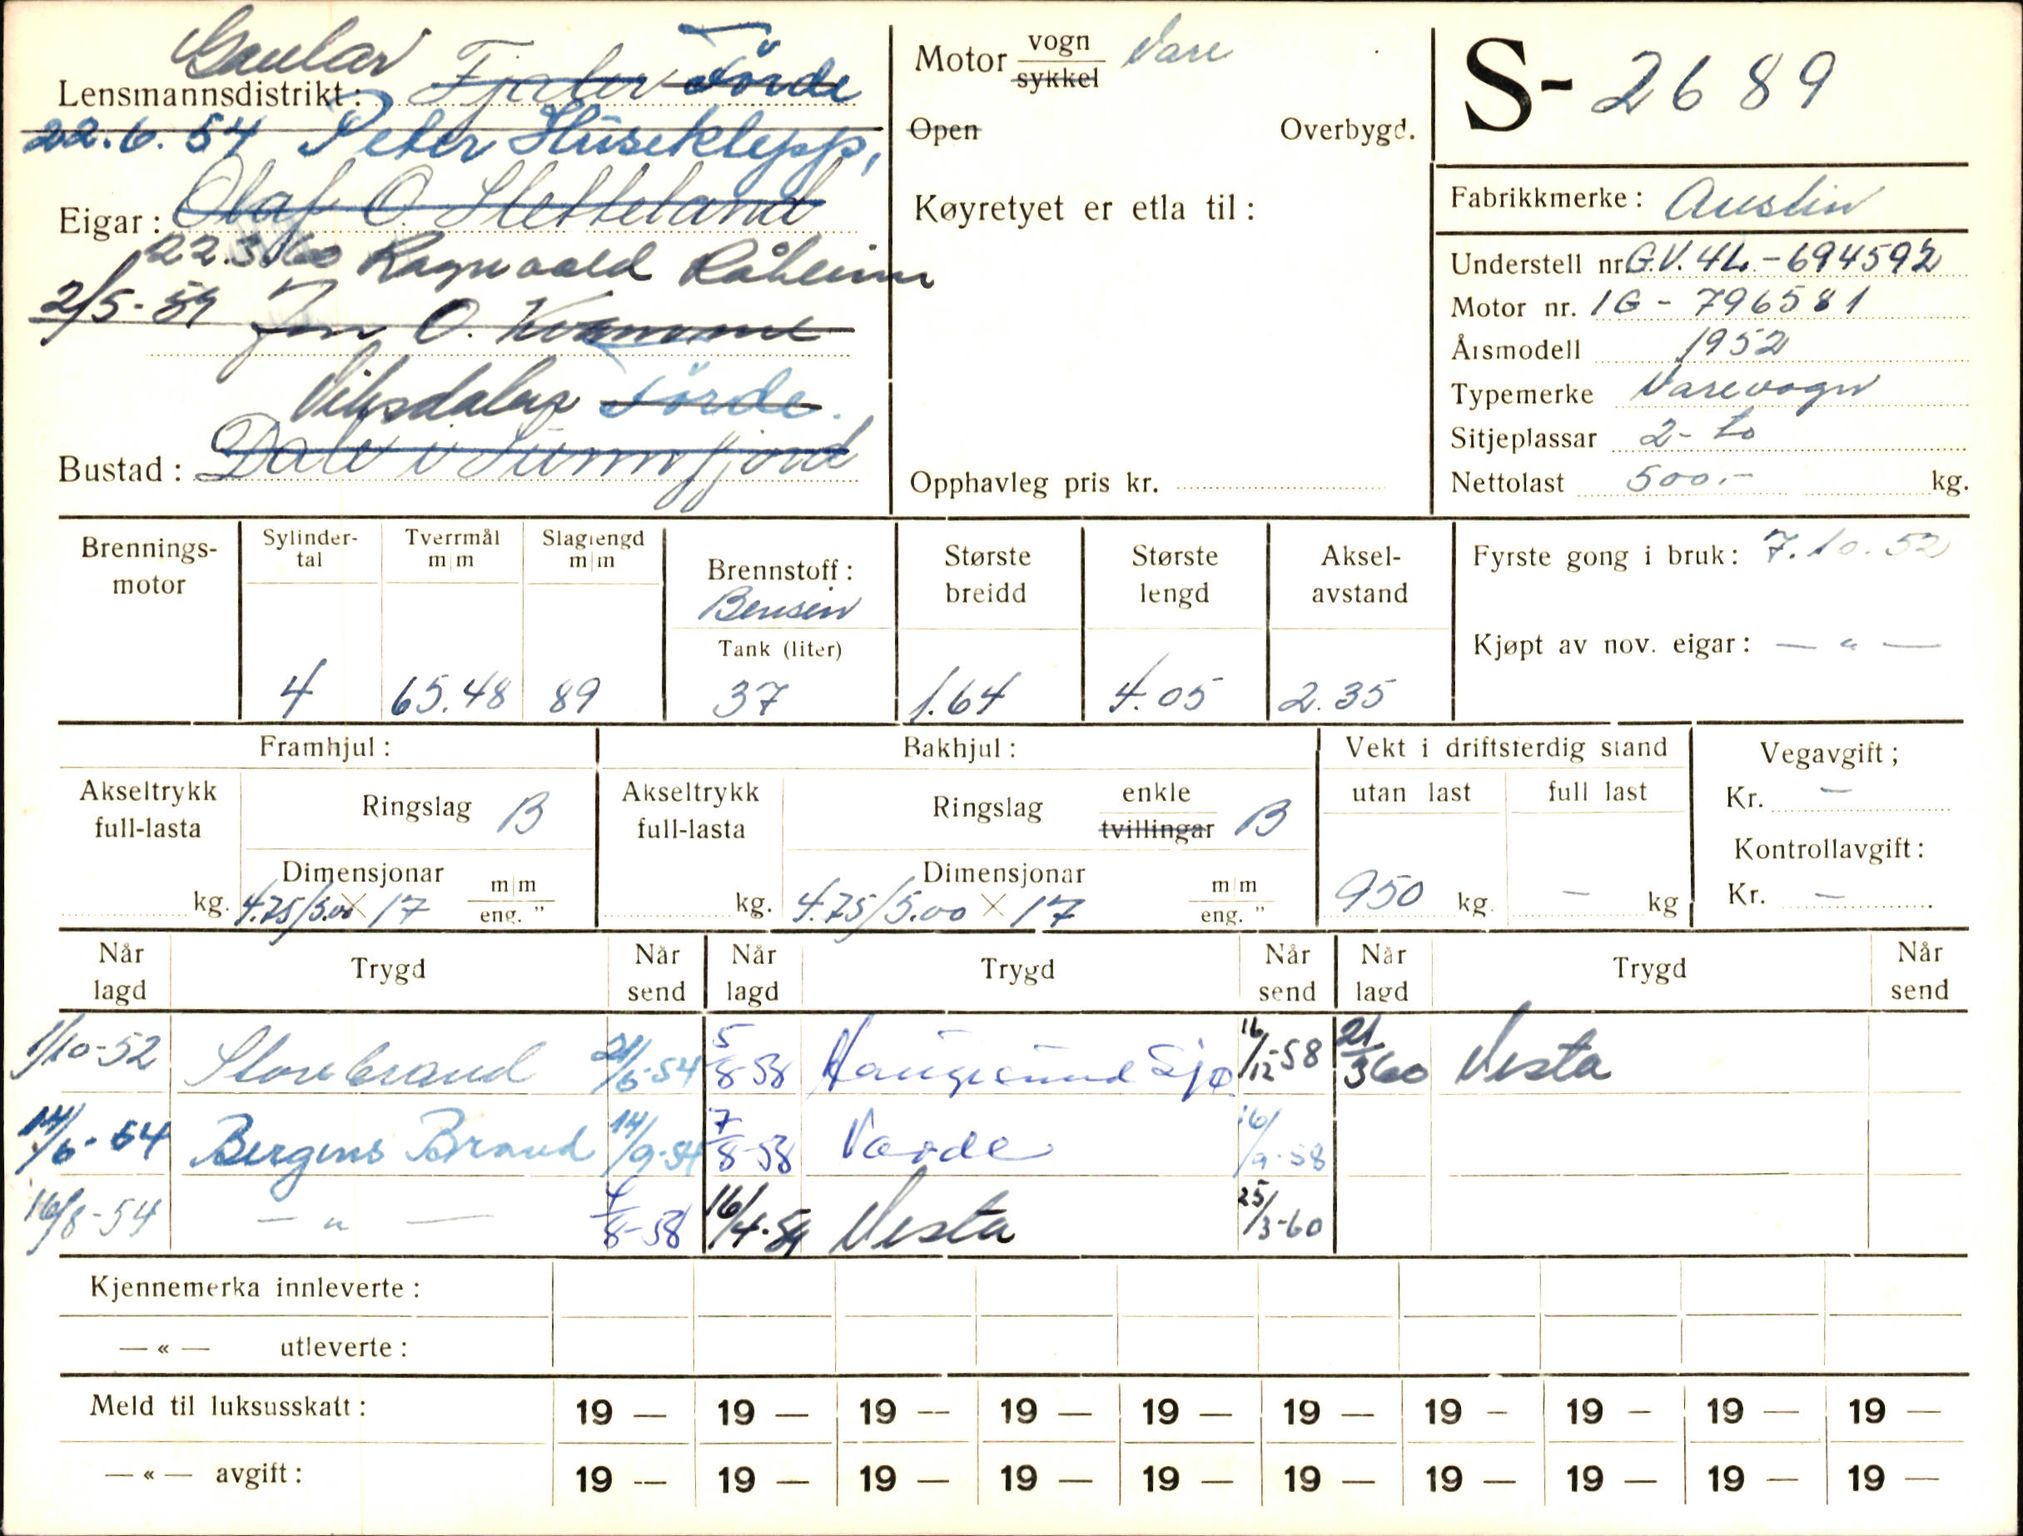 Gaular
Lensmannsdistrikt: Fjaler Förde
22.6.54 Peter Huseklepp,
Eigar: Olaf O Hetteland
22.3.60 Ragnvald Råheim
2/5-59 Jon O. Kvamme
Viksdalen Förde.
Bustad: Dale i Sunnfjord
Motor vogn Vare
sykkel
Open Overbygd.
Køyretyet er etla til:
Opphavleg pris kr.
S- 2689
Fabrikkmerke: Austin
Understell nr. G.V.4L.-694592
Motor nr. 1G - 796581
Årsmodell 1952
Typemerke Varevogn
Sitjeplassar 2- to
Nettolast 500.- kg.
Brennings-
motor
Sylinder-
tal
4
Tverrmål
m|m
65.48
Slaglengd
m|m
89
Brennstoff:
Bensin
Tank (liter)
37
Største
breidd
1.64
Største
lengd
4.05
Aksel-
avstand
2.35
Fyrste gong i bruk: 7.10.52
Kjøpt av nov. eigar: — " —
Framhjul:
Akseltrykk
full-lasta
kg.
Ringslag B
Dimensjonar
4.75/5.00 × 17 m|m
eng. "
Bakhjul:
Akseltrykk
full-lasta
kg.
Ringslag enkle
tvillingar B
Dimensjonar
4.75/5.00 × 17 m|m
eng. "
Vekt i driftsferdig stand
utan last full last
950 kg. — kg
Vegavgift;
Kr. —
Kontrollavgift:
Kr. — .
Når lagd Trygd Når send Når lagd Trygd Når send Når lagd Trygd Når send
1/10-52 Storebrand 21/6-54 5/8-58 Haugesund Sjø 16/12-58 21/3 60 Vesta
14/6-54 Bergens Brand 14/9-54 7/8-58 Varde 16/9-58
16/8-54 — " — 8-58 16/4-59 Vesta 25/3-60
Kjennemerka innleverte:
— « — utleverte:
Meld til luksusskatt: 19 — 19 — 19 — 19 — 19 — 19 — 19 — 19 — 19 — 19 —
— « — avgift: 19 — 19 — 19 — 19 — 19 — 19 — 19 — 19 — 19 — 19 —